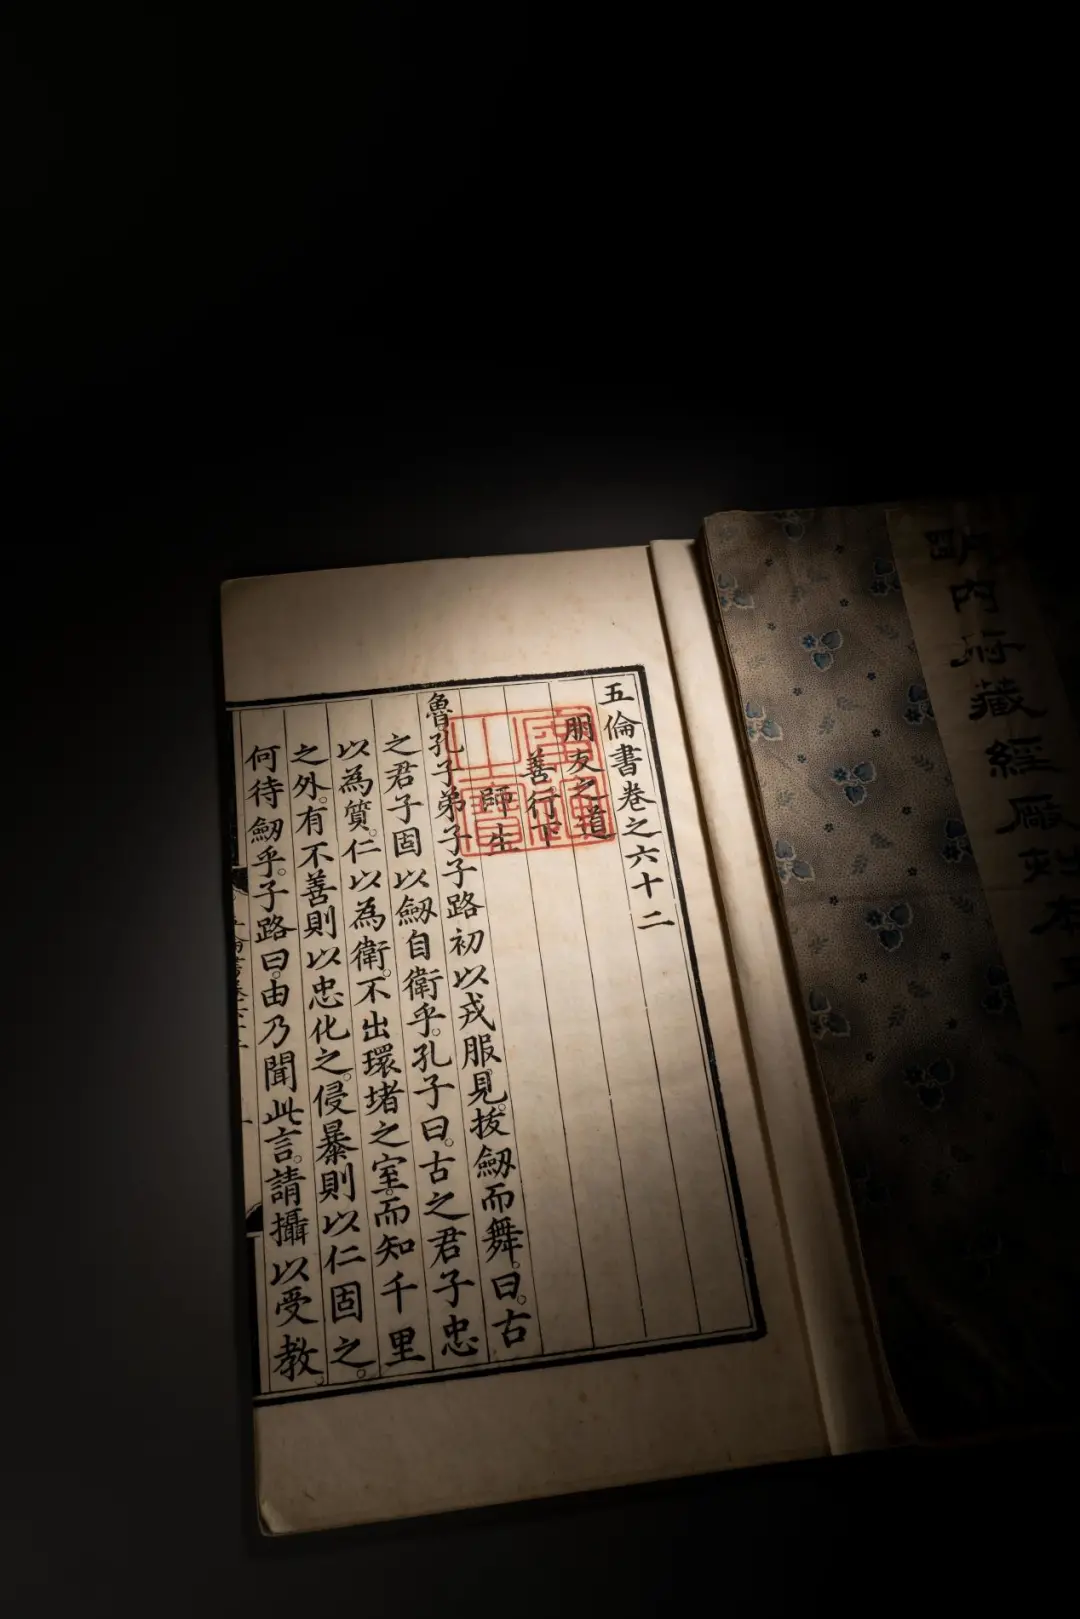 明內府藏經廠本
五倫書卷之六十二
朋友之道
善行下
師生
魯孔子弟子子路初以戎服見。拔劒而舞。曰。古
之君子固以劒自衛乎。孔子曰。古之君子忠
以為質。仁以為衛。不出環堵之室。而知千里
之外。有不善則以忠化之。侵暴則以仁固之。
何待劒乎。子路曰。由乃聞此言。請攝以受教。